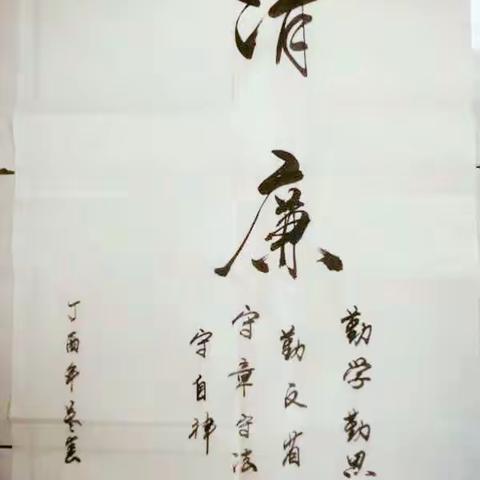 清
廉
勤学勤思
勤反省
守章守法
守自律
丁酉年